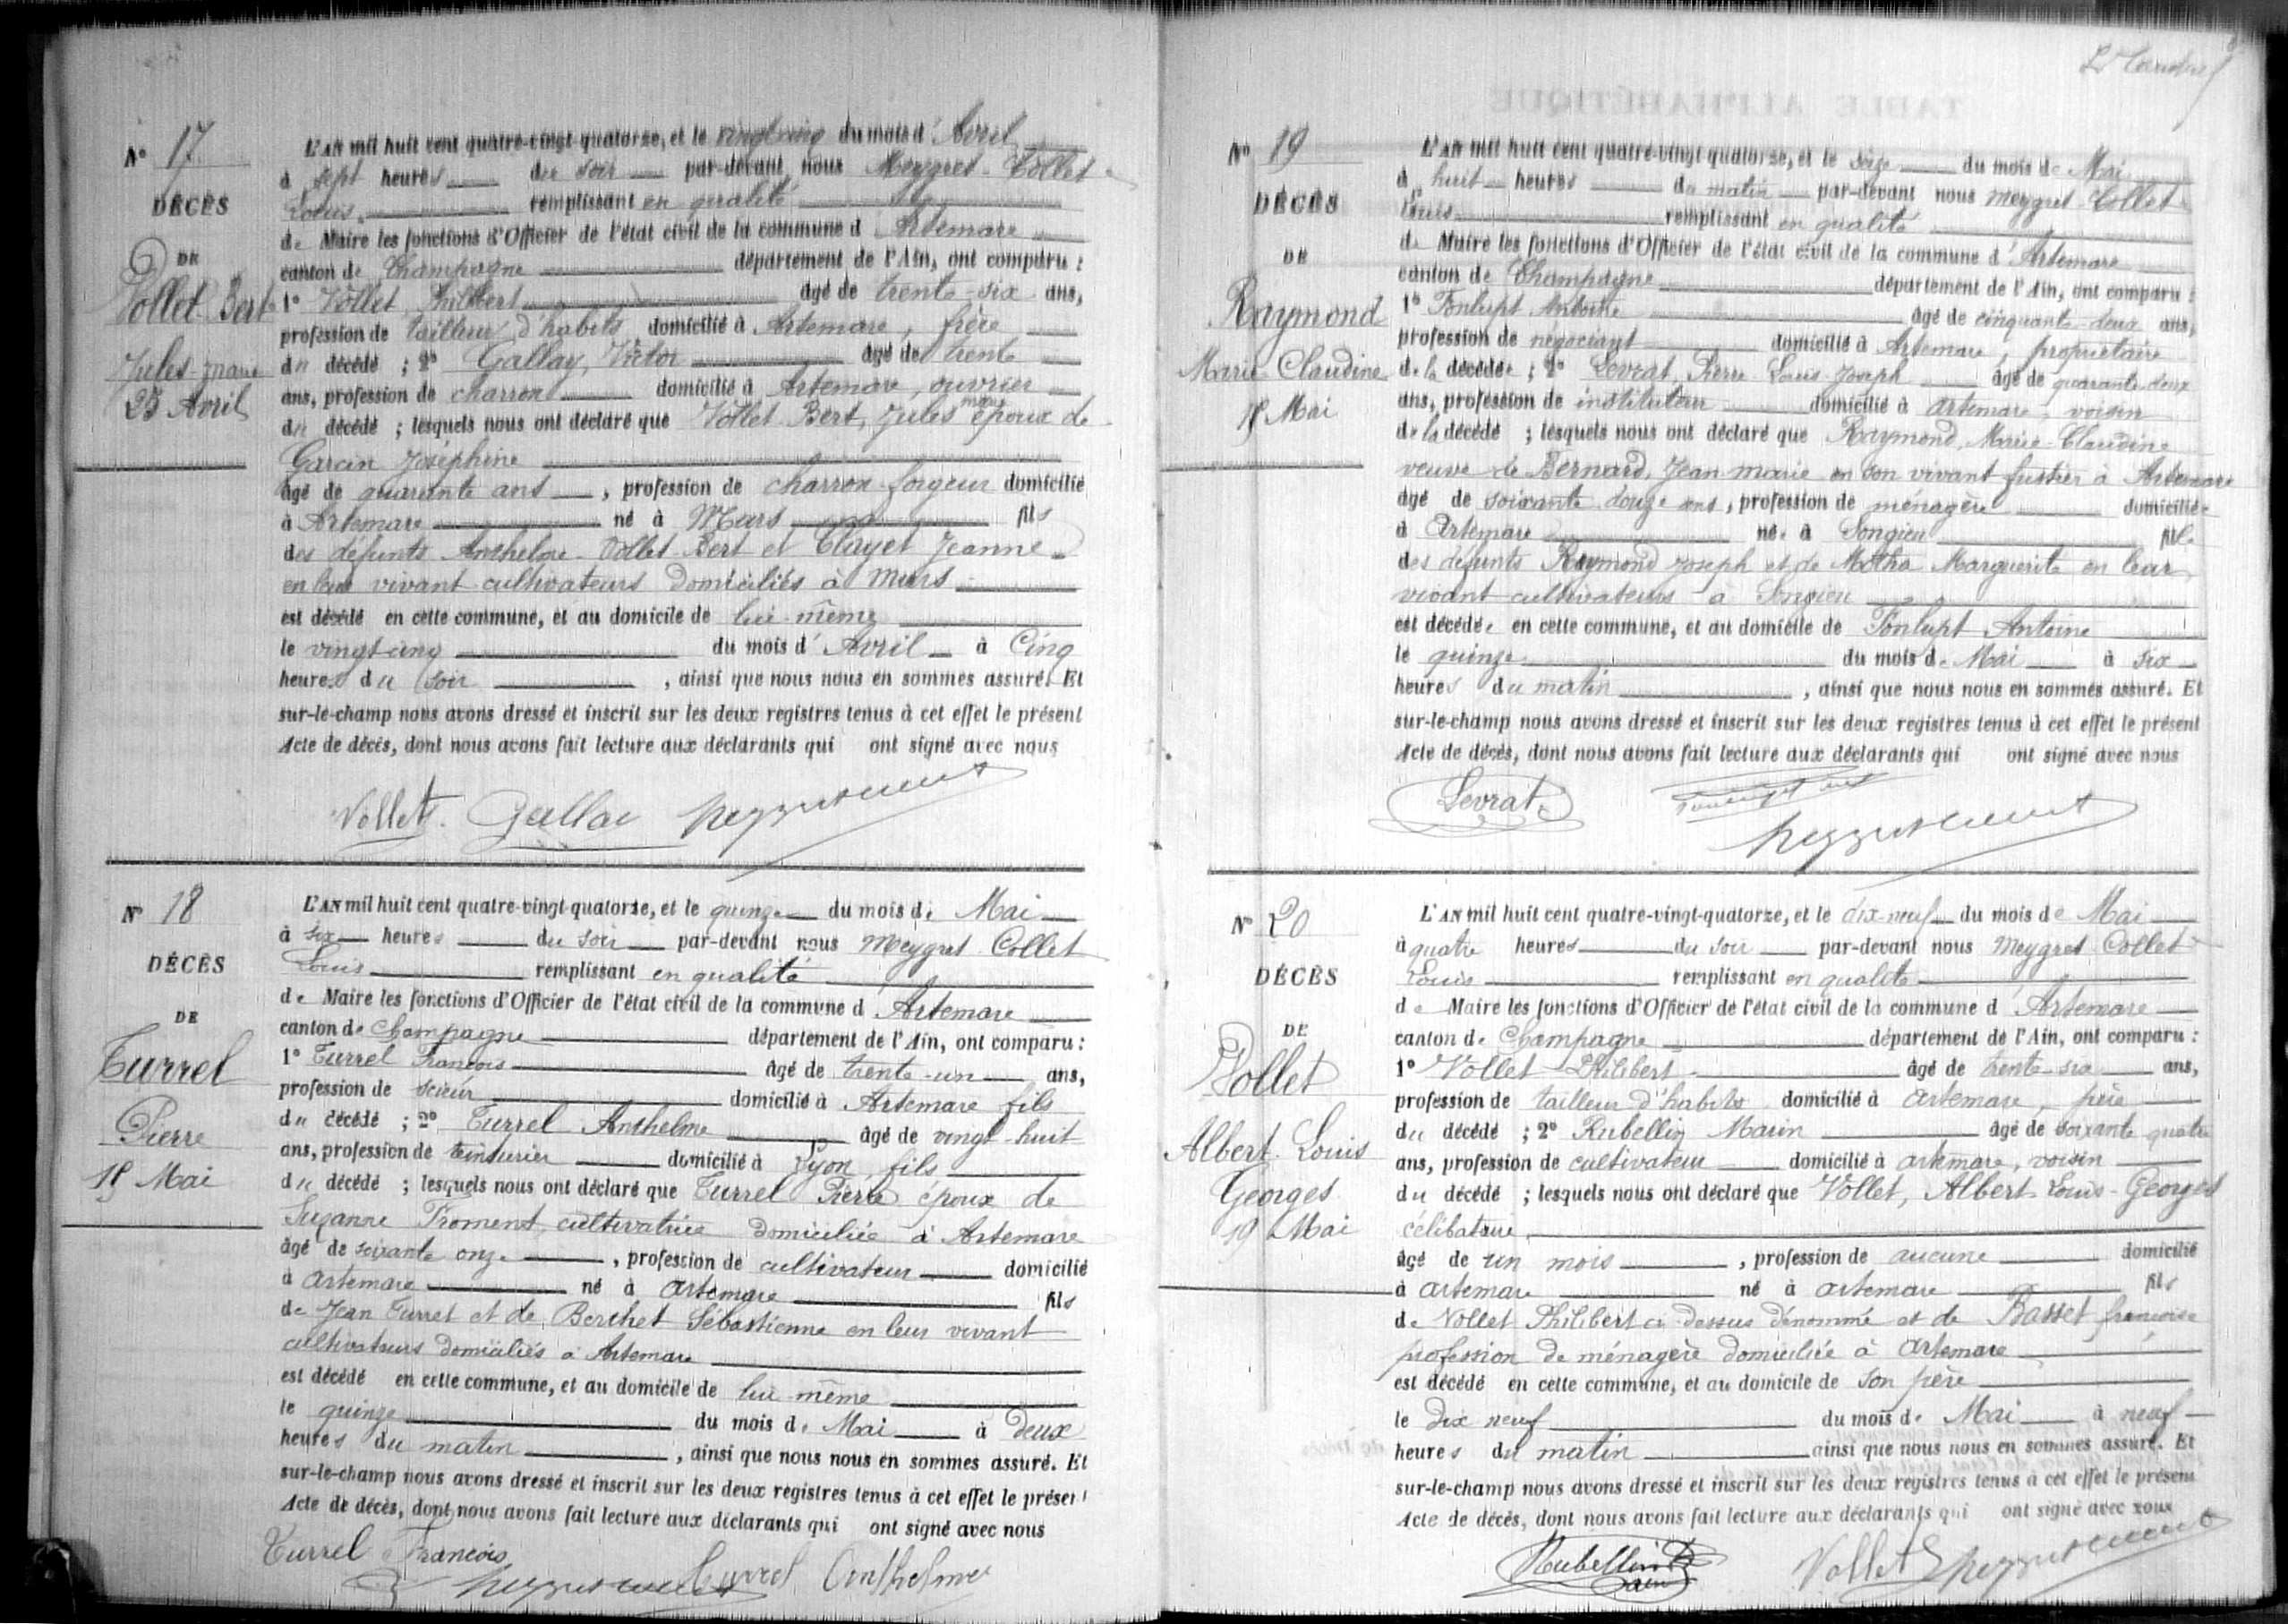 N° 17
DÉCÈS
DE
Vollet-Bert
Jules-marie
25 Avril
L'AN mil huit cent quatre-vingt-quatorze, et le vingt cinq du mois d'Avril
à sept heures du soir par-devant nous Meygret-Collet
Louis remplissant en qualité
de Maire les fonctions d'Officier de l'état civil de la commune d'Artemare
canton de Champagne département de l'Ain, ont comparu :
1° Vollet Philibert âgé de trente-six ans,
profession de tailleur d'habits domicilié à Artemare, frère
du décédé ; 2° Gallay, Victor âgé de trente
ans, profession de charron domicilié à Artemare, ouvrier
du décédé ; lesquels nous ont déclaré que Vollet-Bert, Jules marie époux de
Garcin Joséphine
âgé de quarante ans, profession de charron-forgeur domicilié
à Artemare né à Murs fils
des défunts Anthelme Vollet-Bert et Clayet Jeanne
en leur vivant cultivateurs domiciliés à Murs
est décédé en cette commune, et au domicile de lui-même
le vingt-cinq du mois d'Avril à Cinq
heures du soir, ainsi que nous nous en sommes assuré. Et
sur-le-champ nous avons dressé et inscrit sur les deux registres tenus à cet effet le présent
Acte de décès, dont nous avons fait lecture aux déclarants qui ont signé avec nous
Vollet. Gallay
N° 18
DÉCÈS
DE
Turrel
Pierre
15 Mai
L'AN mil huit cent quatre-vingt-quatorze, et le quinze du mois de Mai
à six heures du soir par-devant nous Meygret-Collet
Louis remplissant en qualité
de Maire les fonctions d'Officier de l'état civil de la commune d'Artemare
canton de Champagne département de l'Ain, ont comparu :
1° Turrel François âgé de trente-un ans,
profession de scieur domicilié à Artemare fils
du décédé ; 2° Turrel Anthelme âgé de vingt-huit
ans, profession de teinturier domicilié à Lyon, fils
du décédé ; lesquels nous ont déclaré que Turrel Pierre époux de
Suzanne Froment, cultivatrice domiciliée à Artemare
âgé de soixante onze, profession de cultivateur domicilié
à Artemare né à Artemare fils
de Jean Turrel et de Berthet Sébastienne en leur vivant
cultivateurs domiciliés à Artemare
est décédé en cette commune, et au domicile de lui même
le quinze du mois de Mai à deux
heures du matin, ainsi que nous nous en sommes assuré. Et
sur-le-champ nous avons dressé et inscrit sur les deux registres tenus à cet effet le présent
Acte de décès, dont nous avons fait lecture aux déclarants qui ont signé avec nous
Turrel François
Turrel Anthelme
TABLE ALPHABÉTIQUE
N° 19
DÉCÈS
DE
Raymond
Marie-Claudine
15 Mai
L'AN mil huit cent quatre-vingt-quatorze, et le seize du mois de Mai
à huit heures du matin par-devant nous Meygret-Collet
Louis remplissant en qualité
de Maire les fonctions d'Officier de l'état civil de la commune d'Artemare
canton de Champagne département de l'Ain, ont comparu :
1° Fonlupt Antoine âgé de cinquante-deux ans,
profession de négociant domicilié à Artemare, propriétaire
de la décédée ; 2° Levrat, Pierre Louis-Joseph âgé de quarante-deux
ans, profession de instituteur domicilié à Artemare, voisin
de la décédé ; lesquels nous ont déclaré que Raymond, Marie-Claudine
veuve de Bernard, Jean marie en son vivant fustier à Artemare
âgé de soixante douze ans, profession de ménagère domiciliée
à Artemare née à Songieu fille
des défunts Raymond Joseph et de Marguerite en leur
vivant cultivateurs à Songieu
est décédée en cette commune, et au domicile de Fonlupt Antoine
le quinze du mois de Mai à six
heures du matin, ainsi que nous nous en sommes assuré. Et
sur-le-champ nous avons dressé et inscrit sur les deux registres tenus à cet effet le présent
Acte de décès, dont nous avons fait lecture aux déclarants qui ont signé avec nous
Levrat
N° 20
DÉCÈS
DE
Vollet
Albert-Louis
Georges
19 Mai
L'AN mil huit cent quatre-vingt-quatorze, et le dix-neuf du mois de Mai
à quatre heures du soir par-devant nous Meygret-Collet
Louis remplissant en qualité
de Maire les fonctions d'Officier de l'état civil de la commune d Artemare
canton de Champagne département de l'Ain, ont comparu :
1° Vollet Philibert âgé de trente-six ans,
profession de tailleur d'habits domicilié à Artemare, père
du décédé ; 2° Rubellin Marin âgé de soixante quatre
ans, profession de cultivateur domicilié à Artemare, voisin
du décédé ; lesquels nous ont déclaré que Vollet, Albert-Louis-Georges
célibataire
âgé de un mois, profession de aucune domicilié
à Artemare né à Artemare fils
de Vollet Philibert ci-dessus dénommé et de Basset françoise
profession de ménagère domiciliée à Artemare
est décédé en cette commune, et au domicile de son père
le dix neuf du mois de Mai à neuf
heures du matin ainsi que nous nous en sommes assuré. Et
sur-le-champ nous avons dressé et inscrit sur les deux registres tenus à cet effet le présent
Acte de décès, dont nous avons fait lecture aux déclarants qui ont signé avec nous
Rubellin Vollet